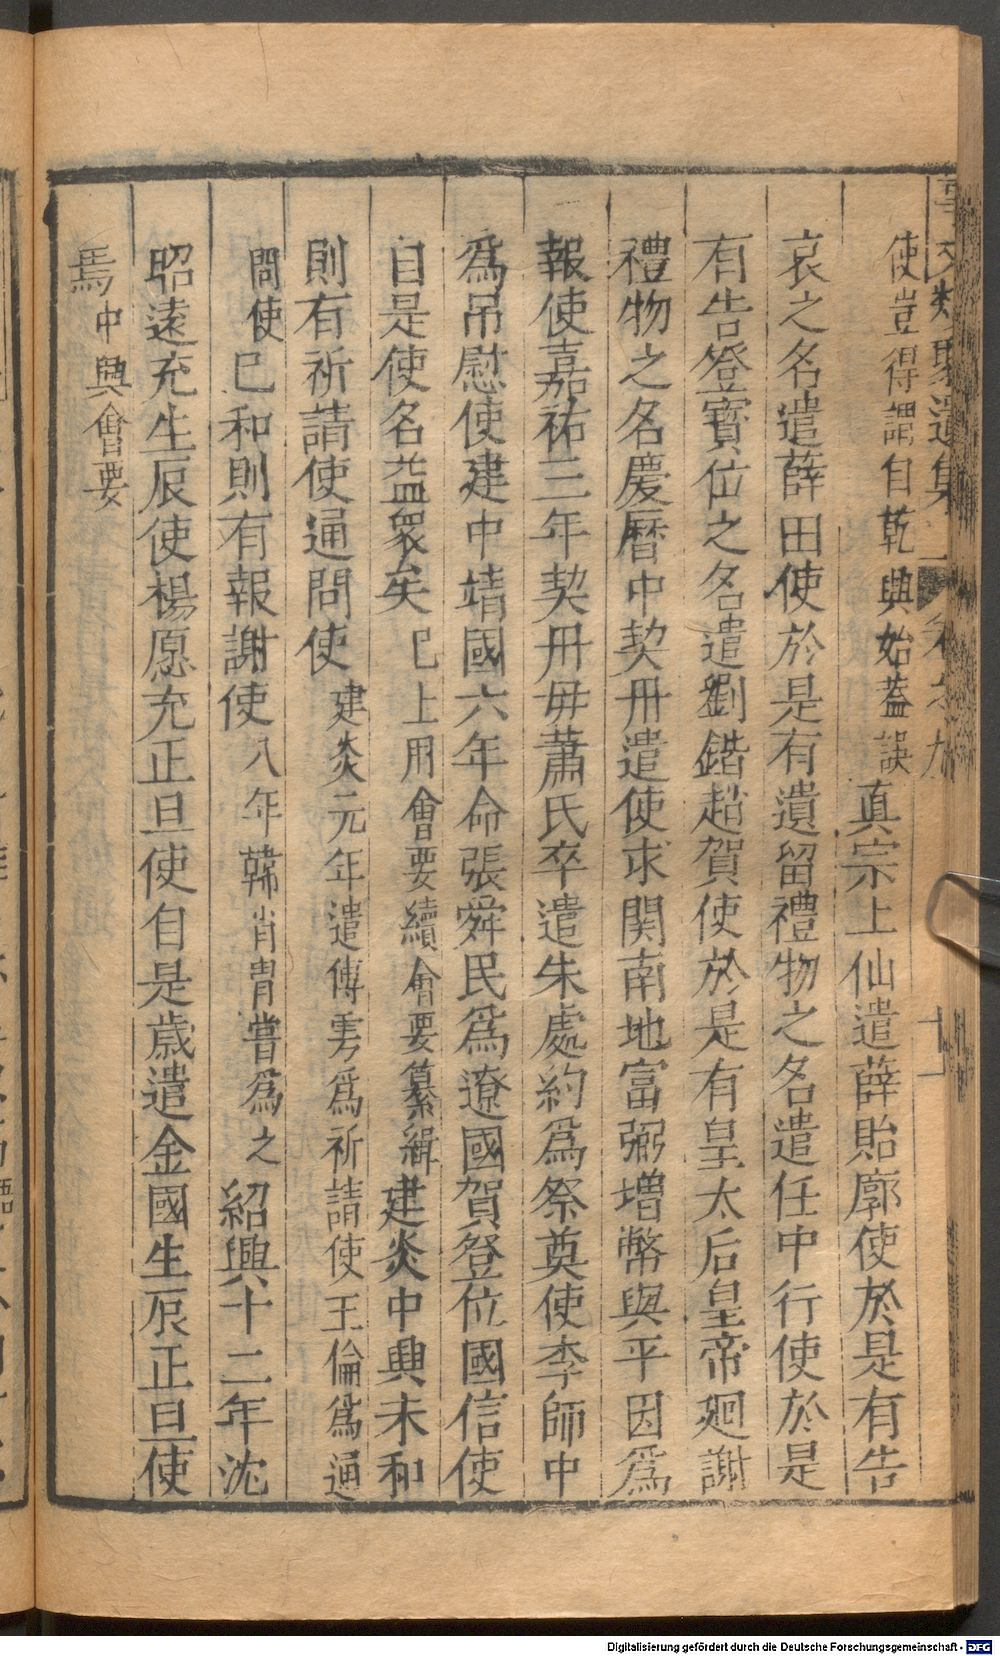 使豈得謂自乾興始蓋誤真宗上仙遣薛貽廓使於是有告
哀之名遣薛田使於是有遺留禮物之名遣任中行使於是
有告登寶位之名遣劉鍇超賀使於是有皇太后皇帝廻謝
禮物之名慶曆中契丹遣使求関南地富弼增幣與平因爲
報使嘉祐三年契丹毋蕭氏卒遣朱處約爲祭奠使李師中
爲吊慰使建中靖國六年命張舜民爲遼國賀登位國信使
自是使名益衆矣已上用會要續會要纂緝建炎中興未和
則有祈請使通問使建炎元年遣傅雱爲祈請使王倫爲通
問使已和則有報謝使八年韓肖胄嘗爲之紹興十二年沈
昭遠充生辰使楊愿充正旦使自是歲遣金國生辰正旦使
焉中興會要
十一
Digitalisierung gefördert durch die Deutsche Forschungsgemeinschaft - DFG